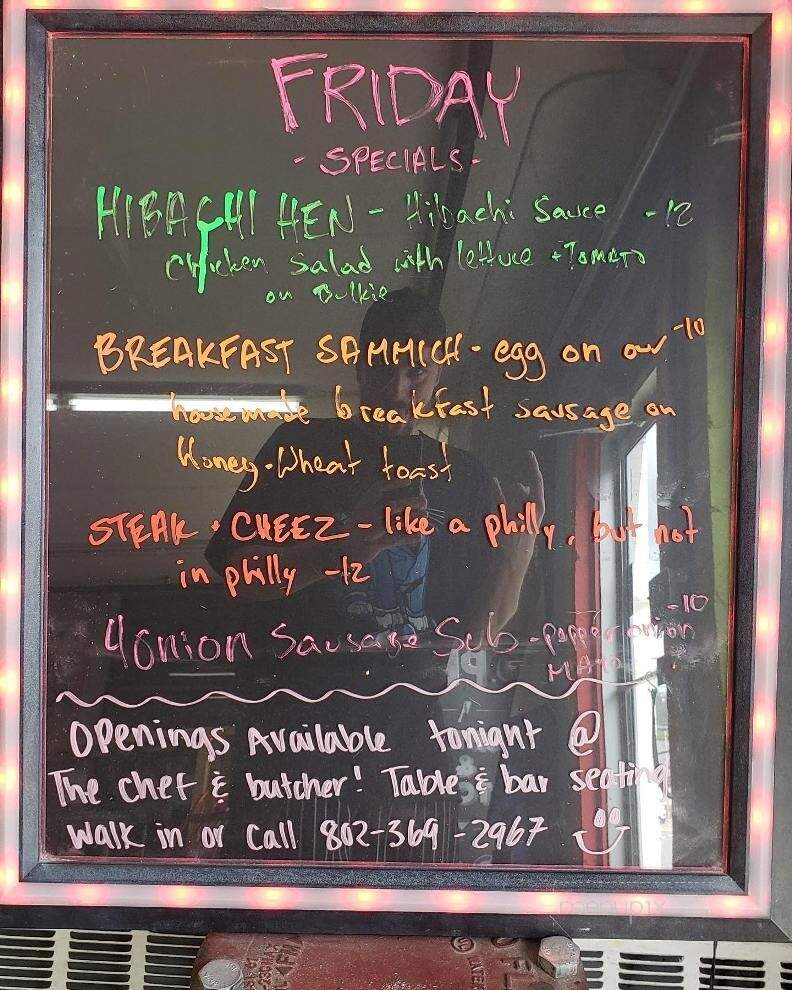 FRIDAY
- SPECIALS -
HIBACHI HEN - Hibachi Sauce -12
Chicken Salad with lettuce + TOMATO
on Bulkie
BREAKFAST SAMMICH - egg on our -10
housemade breakfast sausage on
Honey-Wheat toast
STEAK + CHEEZ - like a philly, but not
in philly -12
4 onion Sausage Sub - pepper onion -10
MAYO
OPenings Available tonight @
The chef & butcher! Table & bar seating
Walk in or call 802-369-2967